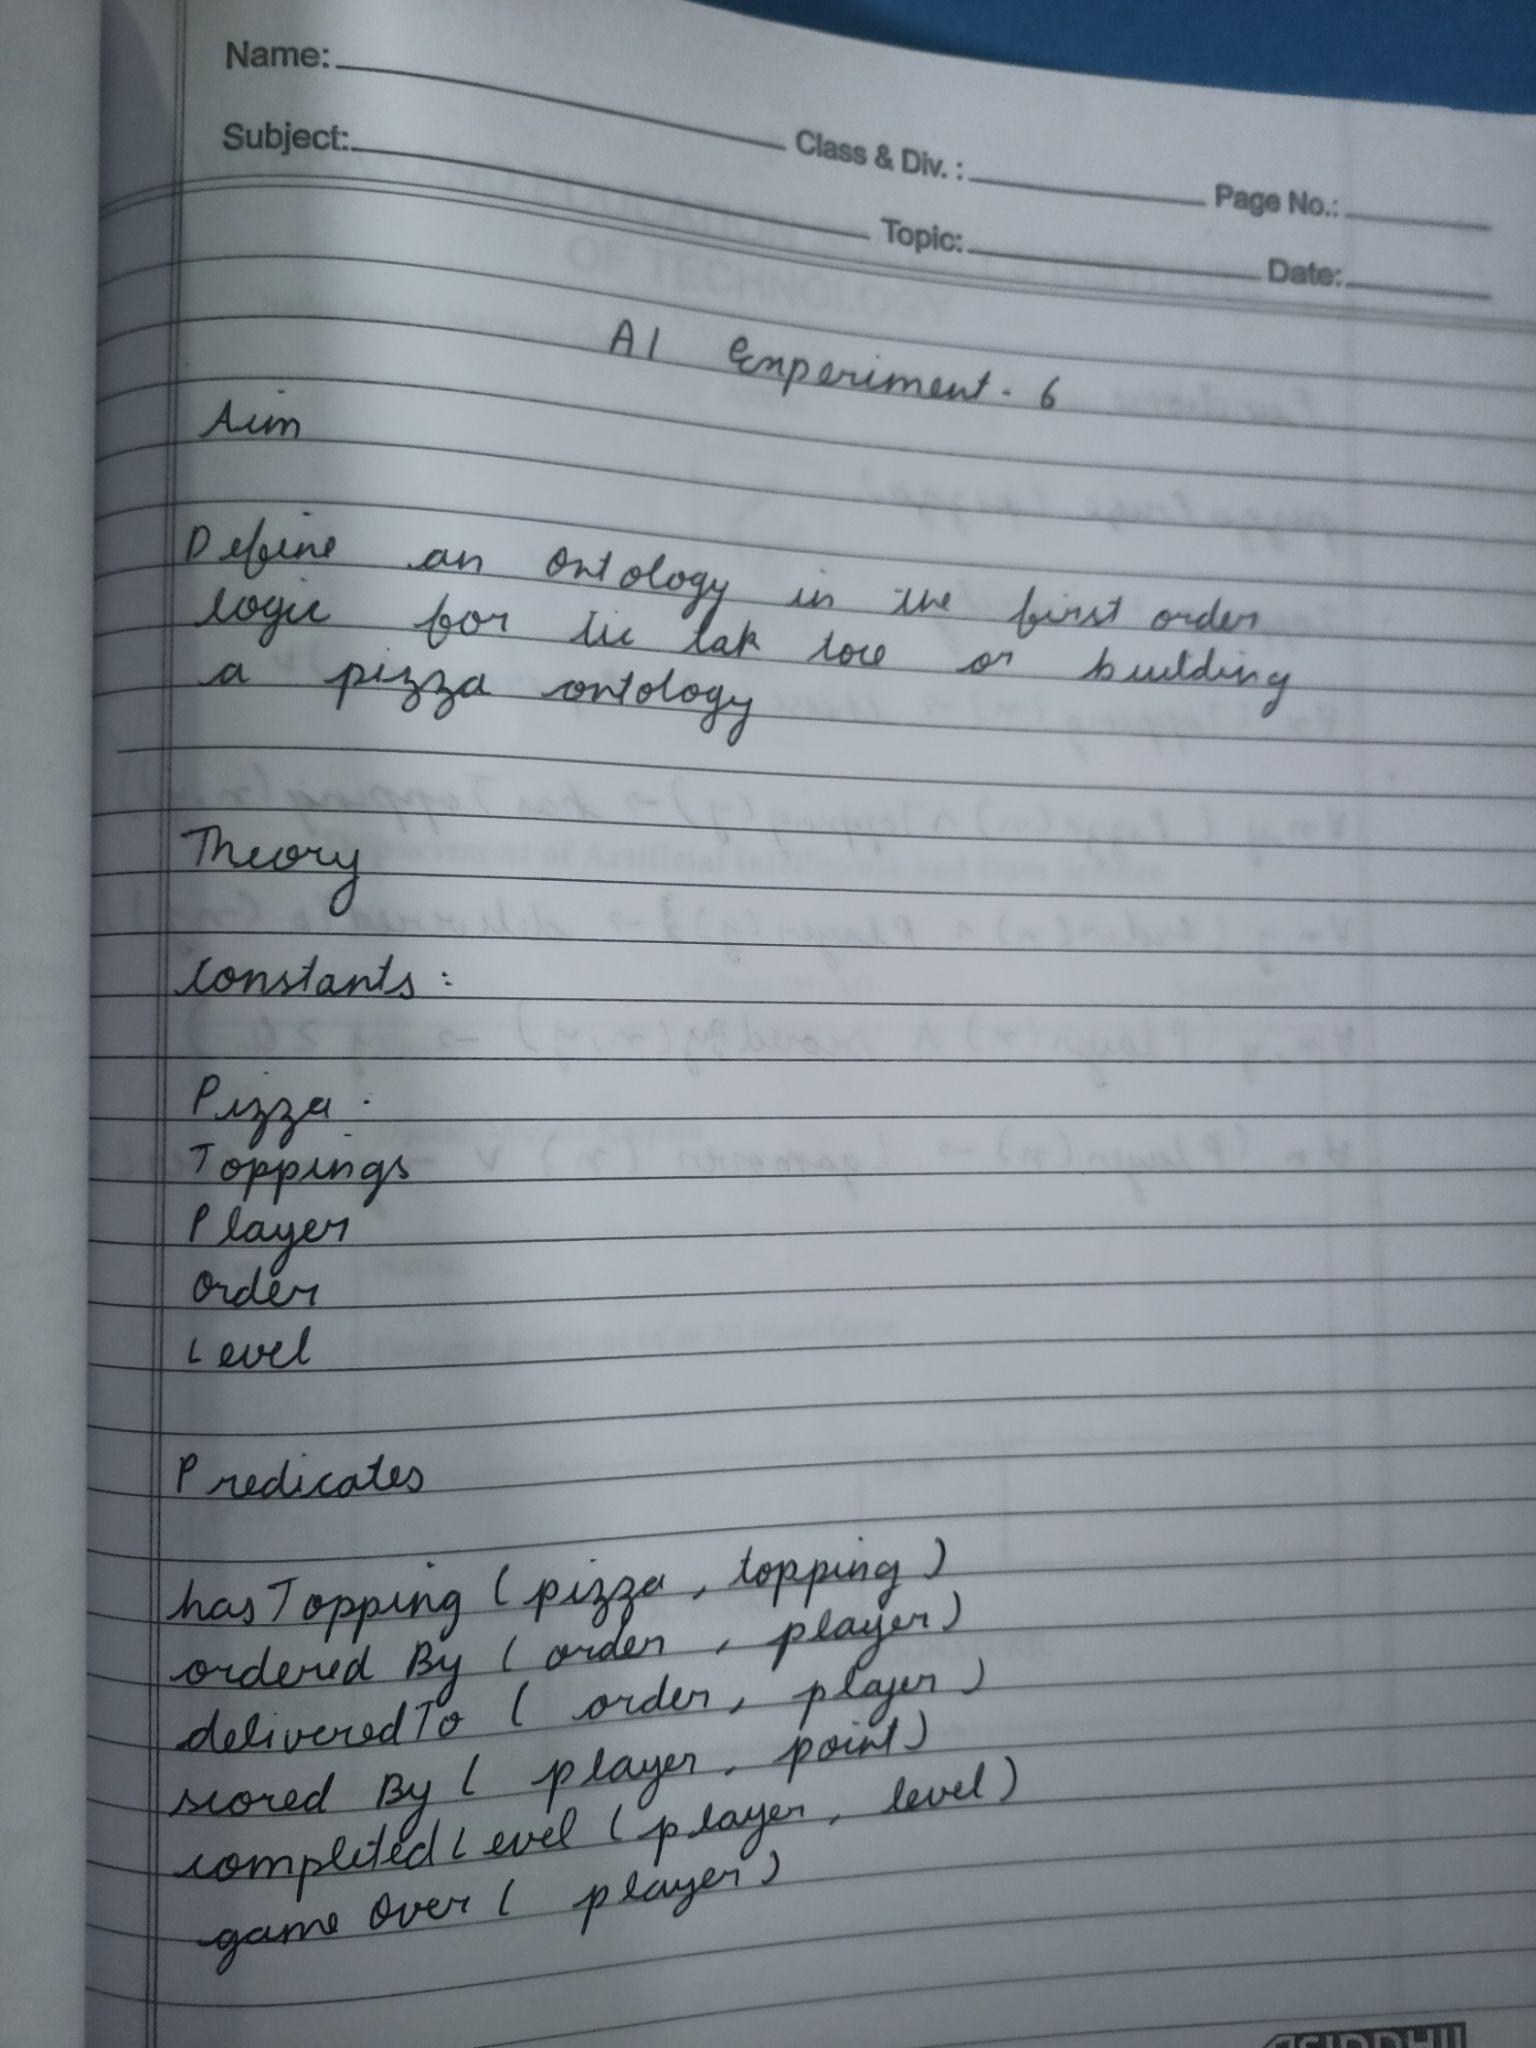 Name:
Class & Div. :
Page No.:
Subject:
Topic:
Date:
AI Experiment - 6
Aim
Define an ontology in the first order
logic for tic tak toe or building
a pizza ontology
Theory
Constants :
Pizza
Toppings
Player
Order
Level
Predicates
hasTopping ( pizza , topping )
ordered By ( order , player )
deliveredTo ( order , player )
scored By ( player , point )
completedLevel ( player , level )
game Over ( player )
SIDDHI